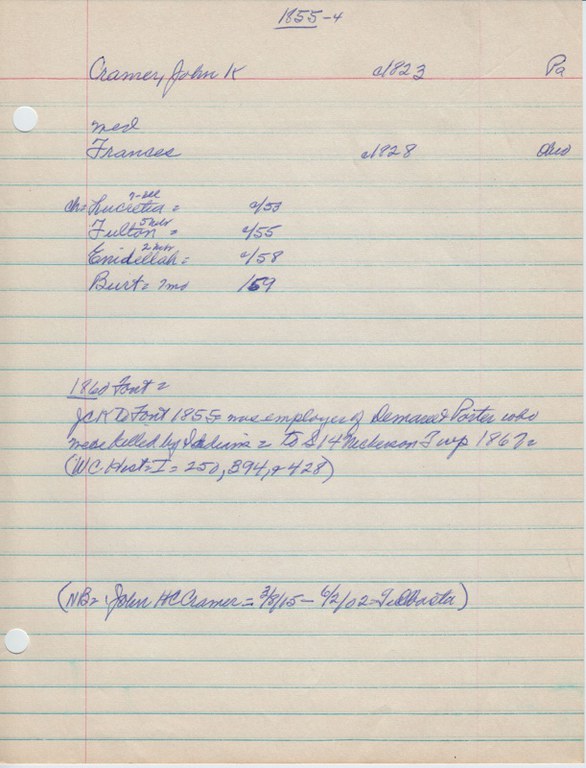 1855-4
Cramer, John K c1823 Pa
med
Frances c1828 Ohio
7-Dec
ch= Lucretia = c/53
5 mdr
Fulton = c/55
2 mdr
= c/58
Burt = 7md 1/59
1860 Font =
JCK To Font 1855 = was employer of Demare & Porter who
were killed by Indians = To S 14 Nickerson Twp 1867 =
(W.C. Hist = I = 250, 394, & 428)
(NB = John HC Cramer = 3/8/15 - 6/2/02 = )